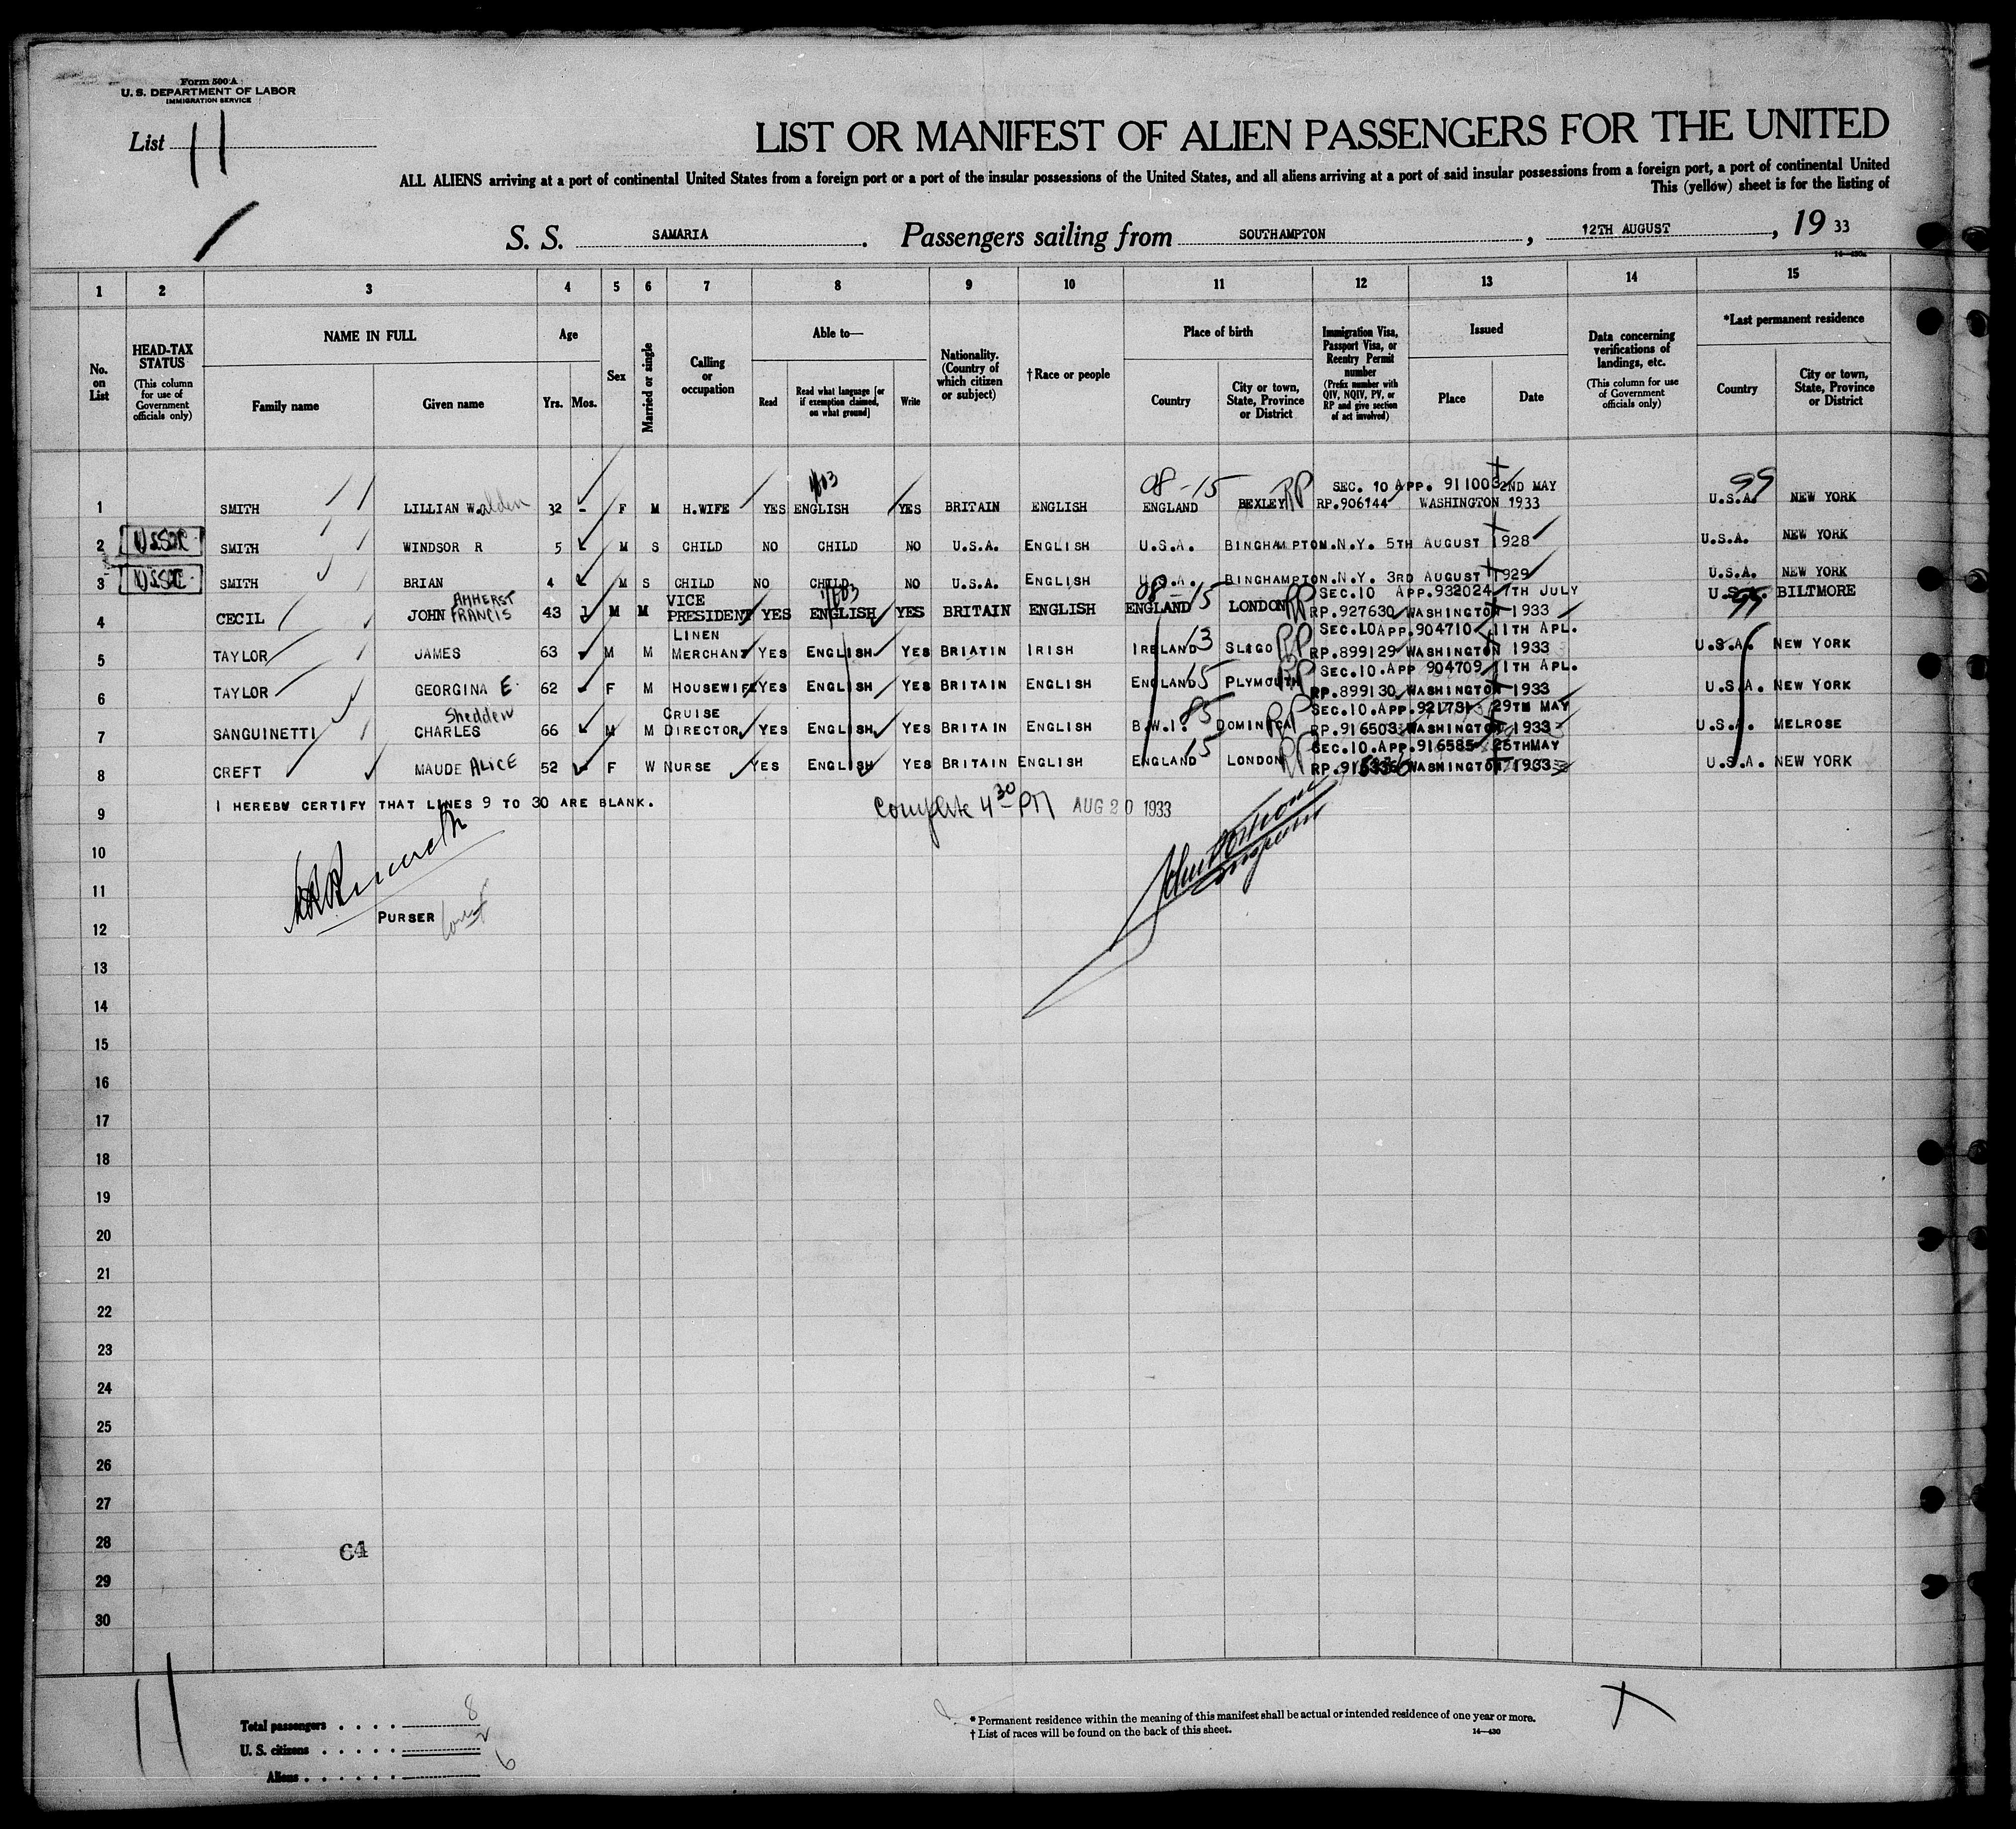 Form 500 A
U. S. DEPARTMENT OF LABOR
IMMIGRATION SERVICE
List 11
LIST OR MANIFEST OF ALIEN PASSENGERS FOR THE UNITED
ALL ALIENS arriving at a port of continental United States from a foreign port or a port of the insular possessions of the United States, and all aliens arriving at a port of said insular possessions from a foreign port, a port of continental United
This (yellow) sheet is for the listing of
S. S. SAMARIA . Passengers sailing from SOUTHAMPTON , 12TH AUGUST , 19 33
1 2 3 4 5 6 7 8 9 10 11 12 13 14 15
No. on List
HEAD-TAX STATUS
(This column for use of Government officials only)
NAME IN FULL
Family name
Given name
Age
Yrs. Mos.
Sex
Married or single
Calling or occupation
Able to—
Read
Read what language [or if exemption claimed, on what ground]
Write
Nationality. (Country of which citizen or subject)
†Race or people
Place of birth
Country
City or town, State, Province or District
Immigration Visa, Passport Visa, or Reentry Permit number
(Prefix number with QIV, NQIV, PV, or RP and give section of act involved)
Issued
Place
Date
Data concerning verifications of landings, etc.
(This column for use of Government officials only)
*Last permanent residence
Country
City or town, State, Province or District
08-15 RP SEC. 10 APP. 911003 2ND MAY 99
1 SMITH LILLIAN W.alden 32 - F M H.WIFE YES ENGLISH YES BRITAIN ENGLISH ENGLAND BEXLEY RP.906144 WASHINGTON 1933 U.S.A. NEW YORK
2 USSC SMITH WINDSOR R 5 M S CHILD NO CHILD NO U.S.A. ENGLISH U.S.A. BINGHAMPTON.N.Y. 5TH AUGUST 1928 U.S.A. NEW YORK
3 SMITH BRIAN 4 M S CHILD NO CHILD NO U.S.A. ENGLISH U.S.A. BINGHAMPTON.N.Y. 3RD AUGUST 1929 U.S.A. NEW YORK
AMHERST VICE 08-15 SEC.10 APP.932024 7TH JULY
4 CECIL JOHN FRANCIS 43 M M PRESIDENT YES ENGLISH YES BRITAIN ENGLISH ENGLAND LONDON RP RP.927630 WASHINGTON 1933 U.S.A. 99 BILTMORE
LINEN SEC.10 APP.904710 11TH APL.
5 TAYLOR JAMES 63 M M MERCHANT YES ENGLISH YES BRIATIN IRISH IRELAND 13 SLIGO RP RP.899129 WASHINGTON 1933 U.S.A. NEW YORK
SEC.10.APP 904709 11TH APL.
6 TAYLOR GEORGINA E. 62 F M HOUSEWIFE YES ENGLISH YES BRITAIN ENGLISH ENGLAND 15 PLYMOUTH RP RP.899130 WASHINGTON 1933 U.S.A. NEW YORK
Shedden CRUISE 85 SEC.10.APP.921731 29TH MAY
7 SANGUINETTI CHARLES 66 M M DIRECTOR YES ENGLISH YES BRITAIN ENGLISH B.W.I. DOMINICA RP RP.916503 WASHINGTON 1933 U.S.A. MELROSE
SEC.10.APP.916585 25THMAY
8 CREFT MAUDE ALICE 52 F W NURSE YES ENGLISH YES BRITAIN ENGLISH ENGLAND 15 LONDON RP WASHINGTON 1933 U.S.A. NEW YORK
9 I HEREBY CERTIFY THAT LINES 9 TO 30 ARE BLANK. Complete 4 30 PM AUG 20 1933
10
11
PURSER
12
13
14
15
16
17
18
19
20
21
22
23
24
25
26
27
28 C4
29
30
11
Total passengers . . . . 8
U. S. citizens . . . . . 2
Aliens . . . . . . 6
* Permanent residence within the meaning of this manifest shall be actual or intended residence of one year or more.
† List of races will be found on the back of this sheet. 14—430